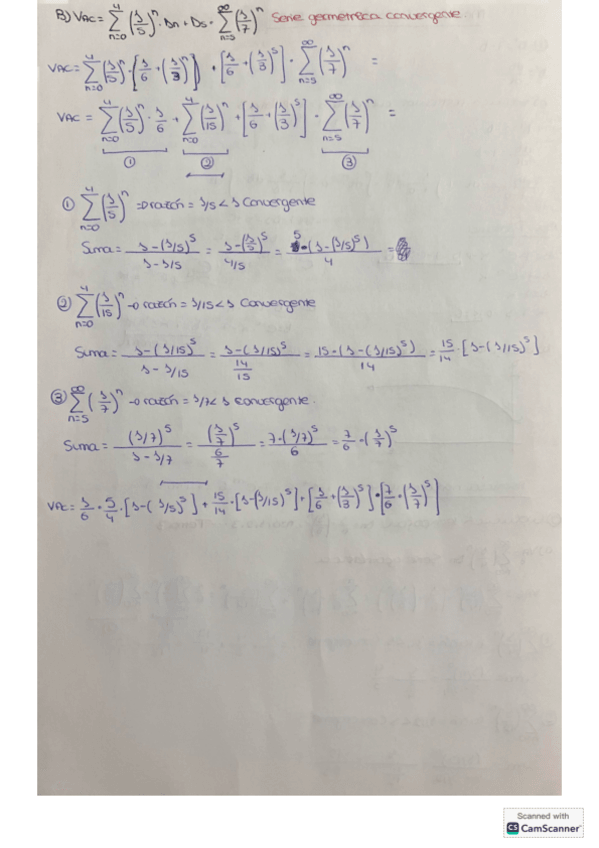 B) VAC = ∑_{n=0}^{4} (1/5)^n · Dn + D5 · ∑_{n=5}^{∞} (1/7)^n Serie geométrica convergente
VAC = ∑_{n=0}^{4} (1/5)^n · [1/6 + (1/3)^n] + [1/6 + (1/3)^5] · ∑_{n=5}^{∞} (1/7)^n =
VAC = ∑_{n=0}^{4} (1/5)^n · 1/6 + ∑_{n=0}^{4} (1/15)^n + [1/6 + (1/3)^5] · ∑_{n=5}^{∞} (1/7)^n =
① ② ③
① ∑_{n=0}^{4} (1/5)^n ⇒ razón = 1/5 < 1 Convergente
Suma = (1 - (1/5)^5)/(1 - 1/5) = (1 - (1/5)^5)/(4/5) = (5 · (1 - (1/5)^5))/4 =
② ∑_{n=0}^{4} (1/15)^n → razón = 1/15 < 1 Convergente
Suma = (1 - (1/15)^5)/(1 - 1/15) = (1 - (1/15)^5)/(14/15) = (15 · (1 - (1/15)^5))/14 = 15/14 · [1 - (1/15)^5]
③ ∑_{n=5}^{∞} (1/7)^n → razón = 1/7 < 1 Convergente.
Suma = ((1/7)^5)/(1 - 1/7) = ((1/7)^5)/(6/7) = (7 · (1/7)^5)/6 = 7/6 · (1/7)^5
VAC = 1/6 · 5/4 · [1 - (1/5)^5] + 15/14 · [1 - (1/15)^5] + [1/6 + (1/3)^5] · [7/6 · (1/7)^5]
Scanned with
CS CamScanner